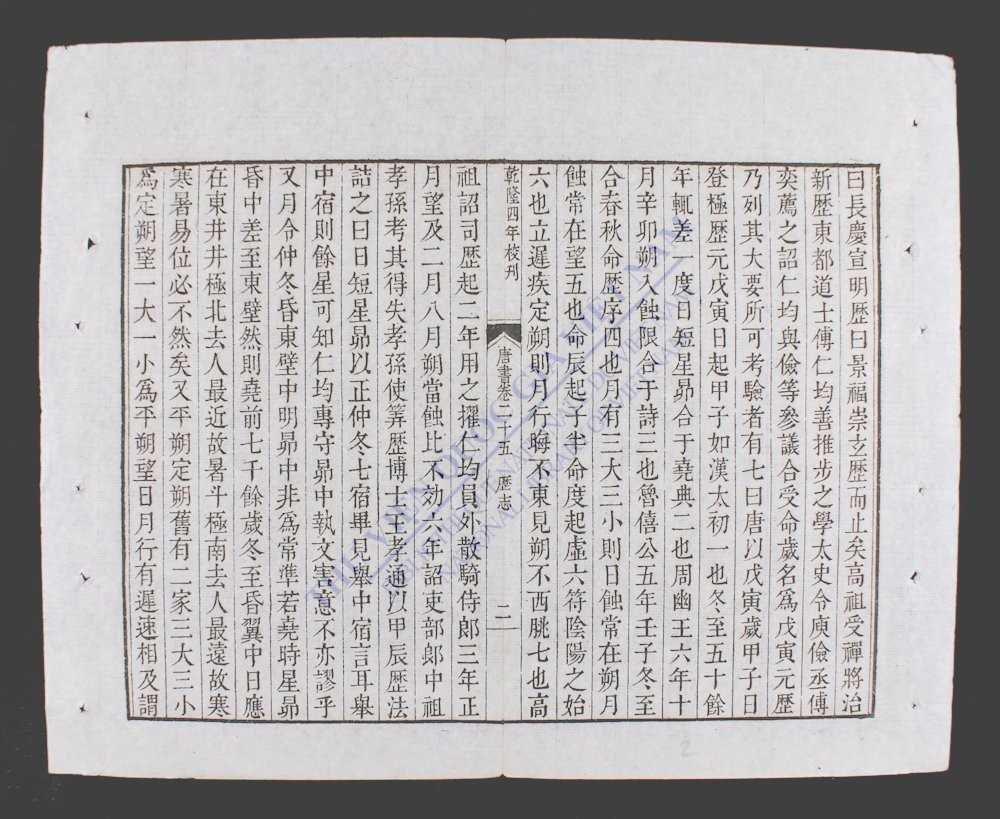 曰長慶宣明歷曰景福崇玄歷而止矣高祖受禪將治
新歷東都道士傅仁均善推步之學太史令庾儉丞傅
奕薦之詔仁均與儉等參議合受命歲名爲戊寅元歷
乃列其大要所可考驗者有七曰唐以戊寅歲甲子日
登極歷元戊寅日起甲子如漢太初一也冬至五十餘
年輒差一度日短星昴合于堯典二也周幽王六年十
月辛卯朔入蝕限合于詩三也魯僖公五年壬子冬至
合春秋命歷序四也月有三大三小則日蝕常在朔月
蝕常在望五也命辰起子半命度起虛六符陰陽之始
六也立遲疾定朔則月行晦不東見朔不西朓七也高
乾隆四年校刊
唐書卷二十五 歷志
二
祖詔司歷起二年用之擢仁均員外散騎侍郎三年正
月望及二月八月朔當蝕比不効六年詔吏部郎中祖
孝孫考其得失孝孫使筭歷博士王孝通以甲辰歷法
詰之曰日短星昴以正仲冬七宿畢見舉中宿言耳舉
中宿則餘星可知仁均專守昴中執文害意不亦謬乎
又月令仲冬昏東壁中明昴中非爲常準若堯時星昴
昏中差至東壁然則堯前七千餘歲冬至昏翼中日應
在東井井極北去人最近故暑斗極南去人最遠故寒
寒暑易位必不然矣又平朔定朔舊有二家三大三小
爲定朔望一大一小爲平朔望日月行有遲速相及謂
THƯ VIỆN QUỐC GIA VIỆT NAM
BIBLIOTHÈQUE NATIONALE DU VIETNAM
NATIONAL LIBRARY OF VIETNAM
2